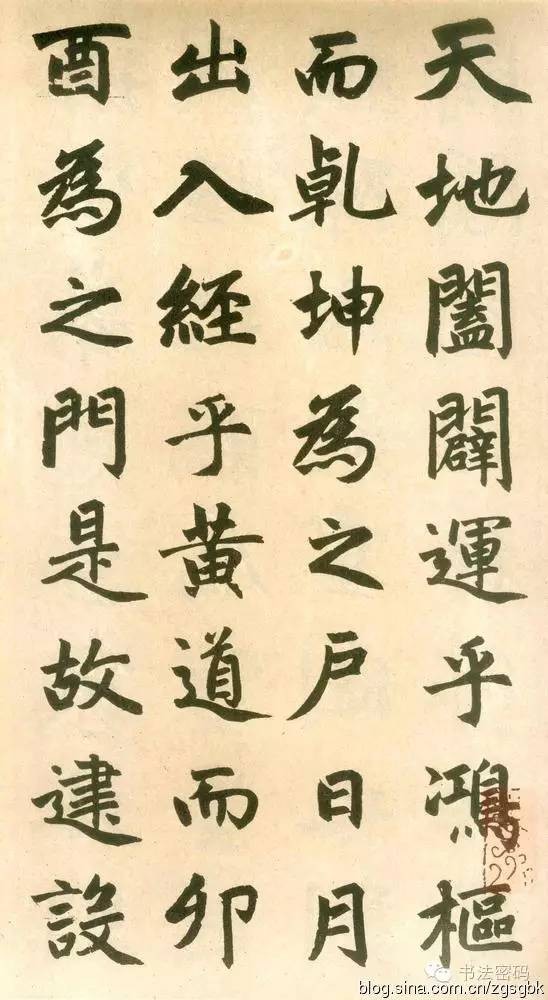 天地闔闢運乎鴻樞
而乹坤為之戶日月
出入經乎黃道而卯
酉為之門是故建設
书法密码
blog.sina.com.cn/zgsgbk